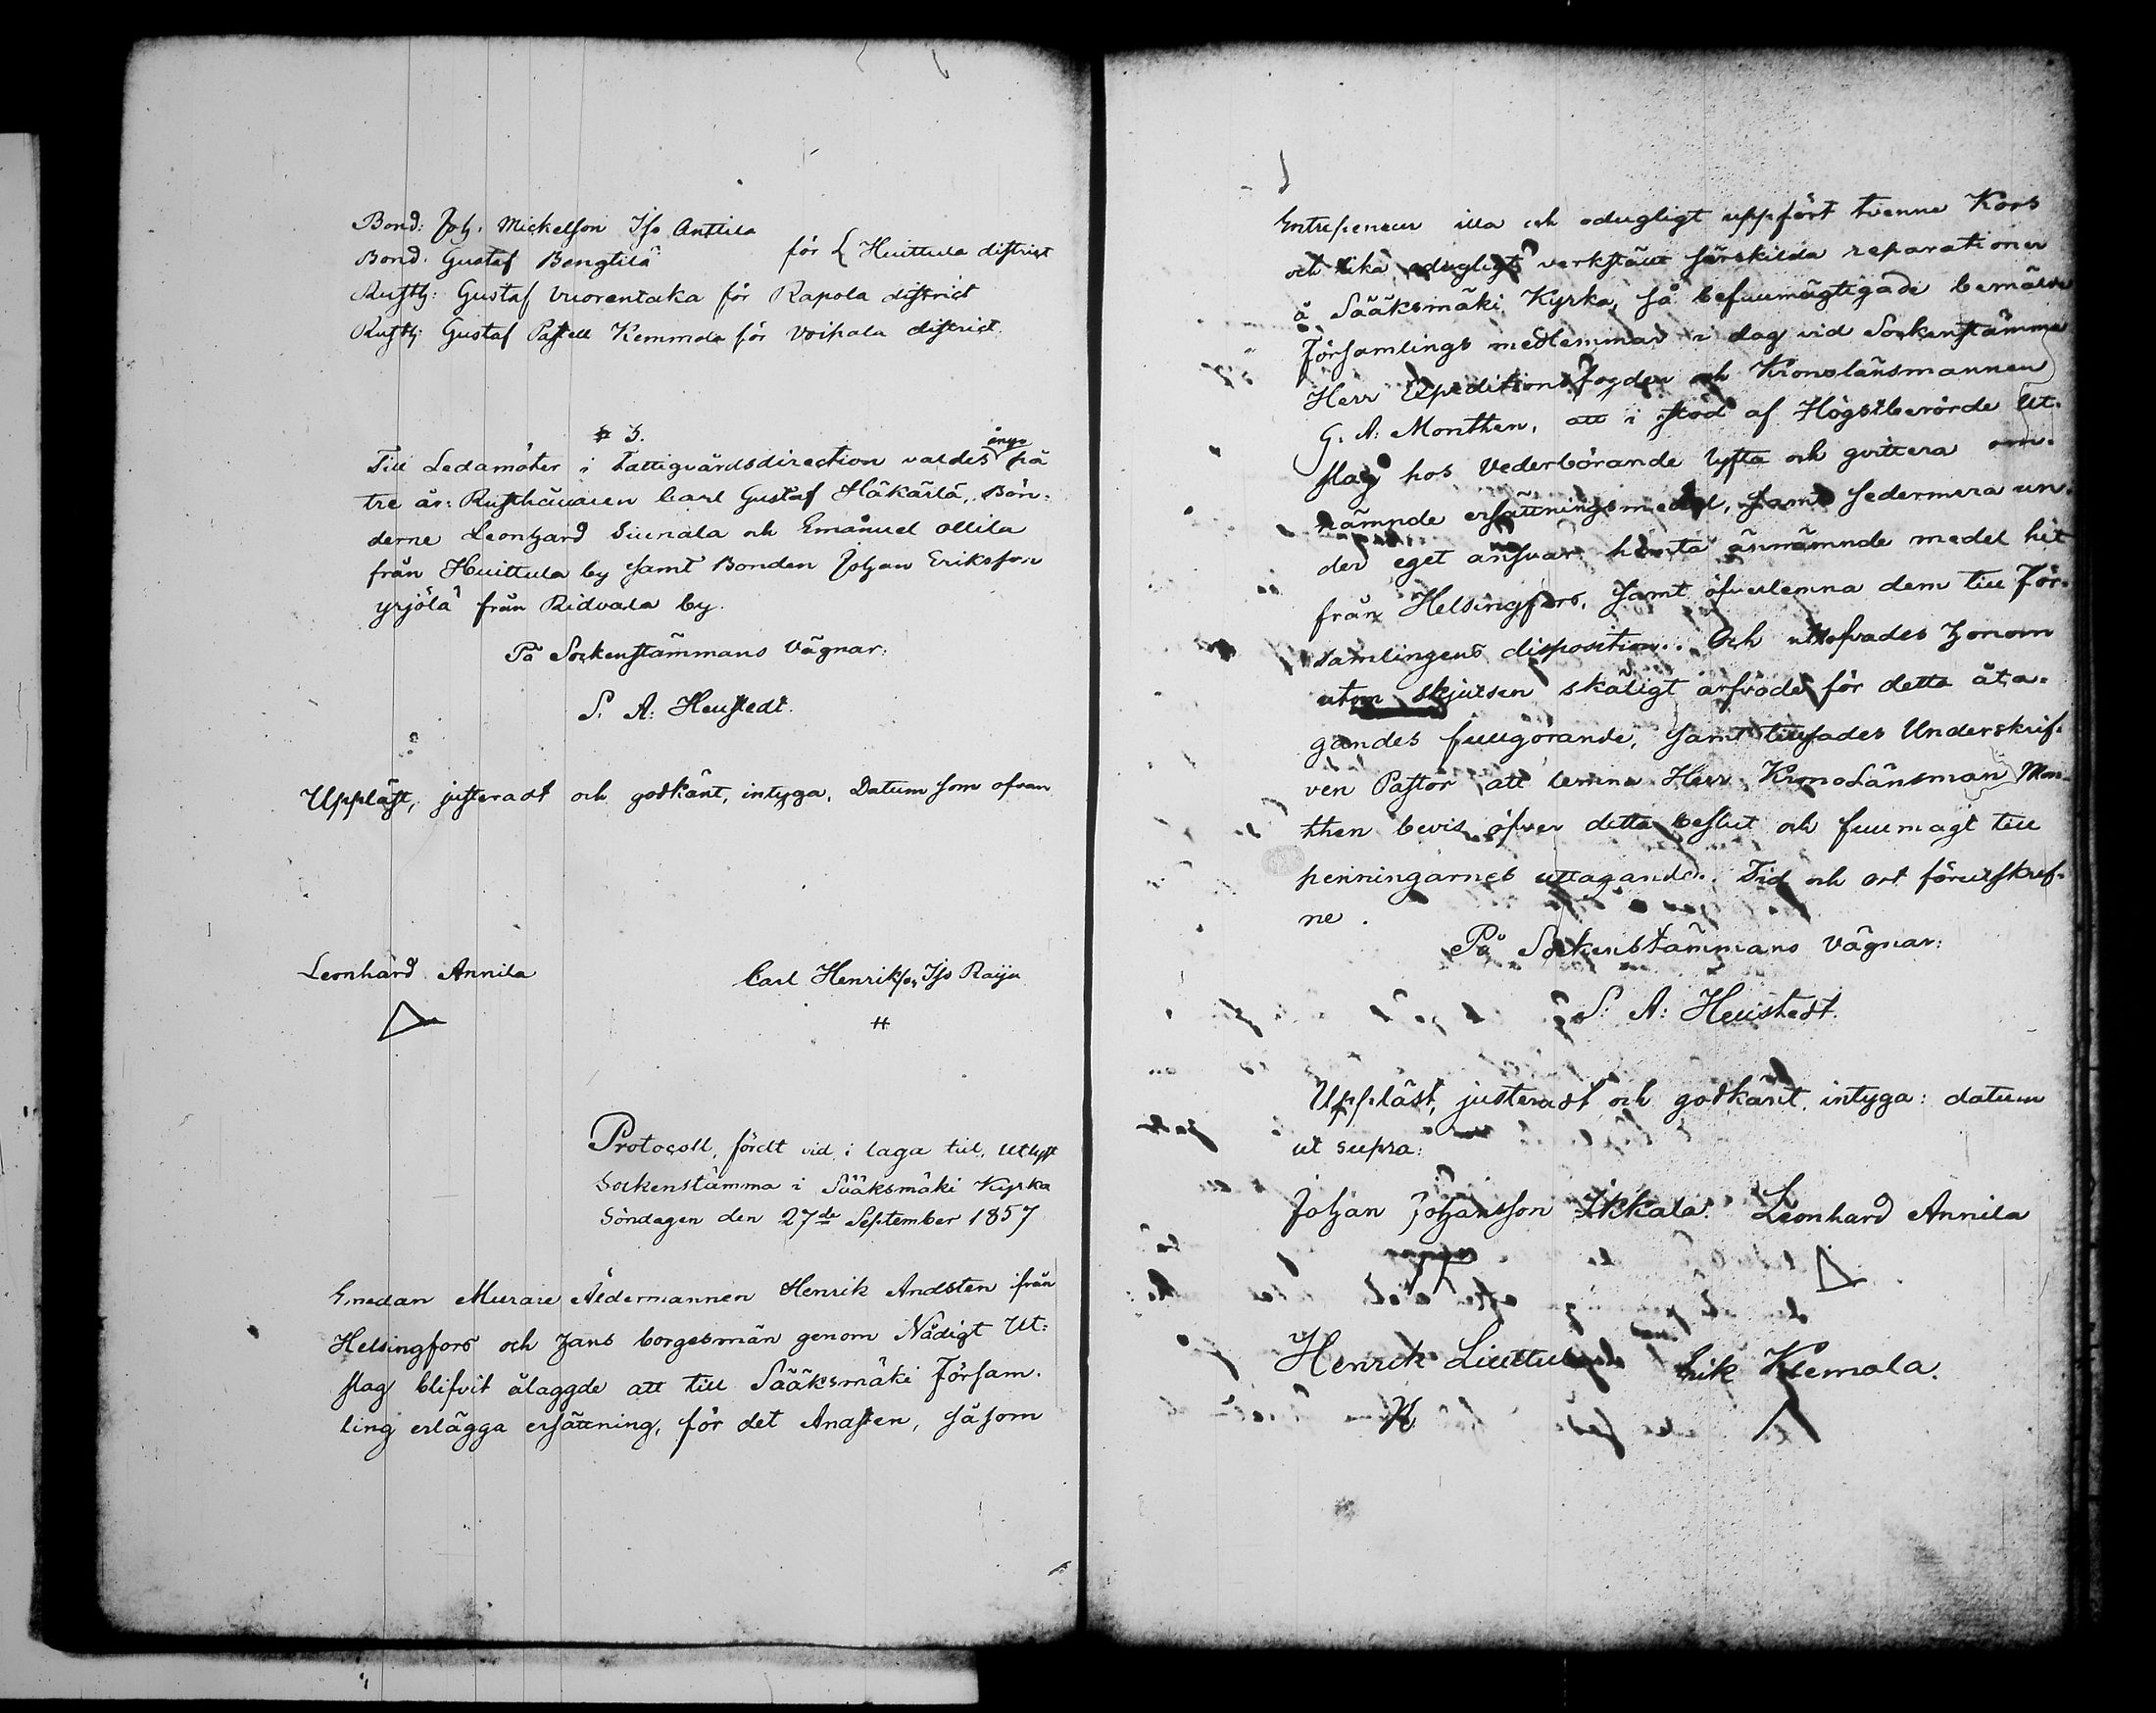 Bond: Joh. Mickelson Iso Anttila
Bond. Gustaf Bengtilä för { Huittula district
Rusth: Gustaf Vuorentaka för Rapola district
Rusth: Gustaf Pastell Kemmola för Voipala district.
§ 3.
Till Ledamöter i Fattigvårdsdirection valdes ånyo på
tre år: Rusthållaren Carl Gustaf Häkärlä, Bön-
derne Leonhard Siurala och Emanuel Ollila
från Huittula by samt Bonden Johan Eriksson
Yrjölä från Ridvala by.
På Sockenstämmans Vägnar:
S. A: Heustedt.
Uppläst, justeradt och godkänt, intyga, Datum som ofvan
Leonhard Annila Carl Henriksson Iso Raiju
Protocoll, fördt vid i laga tid, utlyst
Sockenstämma i Sääksmäki Kyrka
Söndagen den 27de September 1857
Emedan Murare Åldermannen Henrik Andsten från
Helsingfors och hans borgesmän genom Nådigt Ut-
slag blifvit ålaggde att till Sääksmäki Försam-
ling erlägga ersättning, för det Andsten, såsom
Entrepeneur illa och odugligt uppfört tvenne Kors
och lika odugligt verkställt särskilda reparationer
å Sääksmäki Kyrka, så befullmägtigade bemälde
Församlings medlemmar i dag vid Sockenstämma
Herr Expeditionsfogden och Kronolänsmannen
G. A: Monthen, att i stöd af Högstberörde Ut-
slag hos Vederbörande lyfta och qvittera om-
nämnde ersättningsmedel, samt sedermera un-
der eget ansvar hämta änmämnde medel hit
från Helsingfors, samt öfverlemna dem till För-
samlingens disposition. Och utlofvades honom
utom skjutsen skäligt arfvode för detta åta-
gandes fullgörande, samt tillsades Underskrif-
ven Pastor att lemna Herr KronoLänsman Mon-
then bevis öfver detta beslut och fullmagt till
penningarnes uttagande. Tid och ort förutskref-
ne.
På Sockenstämmans Vägnar:
S. A: Heustedt.
Uppläst, justeradt och godkänt, intyga: datum
ut supra:
Johan Johansson Ikkala. Leonhard Annila
Henrik Liuttula Erik Klemola.